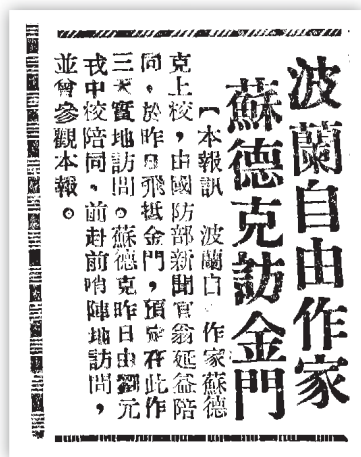 波蘭自由作家
蘇德克訪金門
【本報訊 波蘭自 作家蘇德
克上校，由國防部新聞官翁延益陪
同，於昨日飛抵金門，預定在此作
三天實地訪問。蘇德克昨日由劉元
戎中校陪同，前赴前哨陣地訪問，
並曾參觀本報。